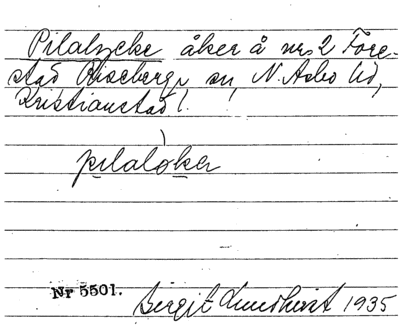 Pilalycke åker å nr 2 Före-
stad Riseberga sn, N. Åsbo hd,
Kristianstad l.
pilaløker
Nr 5501.
Birgit Lundkvist 1935